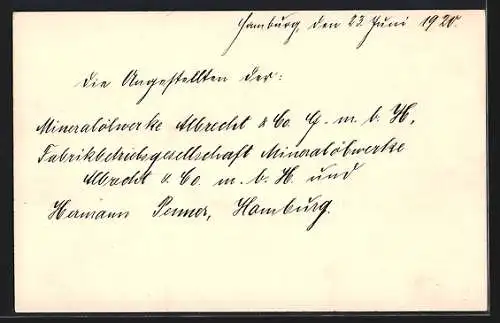 Hamburg, den 23. Juni 1920.
Die Angestellten der:
Mineralölwerke Albrecht & Co. G. m. b. H.,
Fabrikbetriebsgesellschaft Mineralölwerke
Albrecht & Co. m. b. H. und
Hermann Penner, Hamburg.